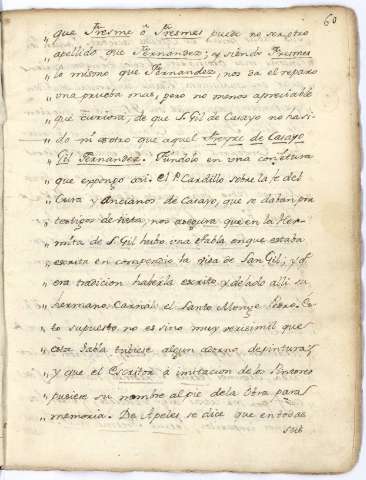 60
„ que Fresme ò Fresmes puede no ser otro
„ apellido que Fernandez; y siendo Fresmes
„ lo mismo que Fernandez, nos da el reparo
„ una prueba mas, pero no menos apreciable
„ que curiosa, de que S. Gil de Casayo no ha si-
„ do otro que aquel Freyre de Casayo
„ Gil Fernandez. Fúndolo en una conjetura
„ que expongo asi. el P. Cardillo sobre la fe del
„ Cura y Ancianos de Casayo, que se datan por
„ testigos de vista, nos asegura que en la Her-
„ mita de S. Gil hubo una tabla en que estaba
„ escrita en compendio la vida de San Gil; y
„ era tradicion haberla escrito y dexado alli su
„ hermano Carnal el Santo Monge Pedro. Es-
„ to supuesto no es sino muy verisimil que
„ esta Tabla tubiese algun adorno de pintura,
„ y que el Escritor à imitacion de los Pintores
„ pusiese su nombre al pie de la Obra para
„ memoria. De Apeles se dice que en todas
sus